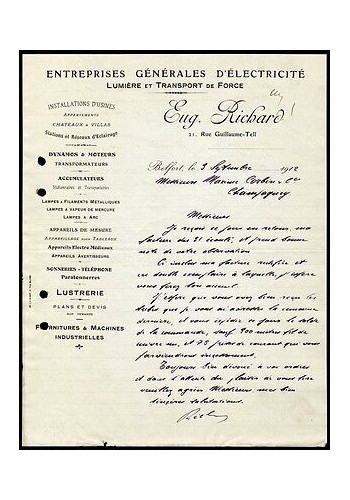 ENTREPRISES GÉNÉRALES D'ÉLECTRICITÉ
LUMIÈRE ET TRANSPORT DE FORCE
Eug. Richard
21, Rue Guillaume-Tell
INSTALLATIONS D'USINES
APPARTEMENTS
CHATEAUX & VILLAS
Stations et Réseaux d'Éclairage
DYNAMOS & MOTEURS
TRANSFORMATEURS
ACCUMULATEURS
Stationnaires et Transportables
LAMPES A FILAMENTS MÉTALLIQUES
LAMPES A VAPEUR DE MERCURE
LAMPES A ARC
APPAREILS DE MESURE
APPAREILLAGE POUR TABLEAUX
Appareils Electro-Médicaux
APPAREILS AVERTISSEURS
SONNERIES - TÉLÉPHONE
Paratonnerres
LUSTRERIE
PLANS ET DEVIS
SUR DEMANDE
FOURNITURES & MACHINES
INDUSTRIELLES
Belfort, le 3 Septembre 1912
Messieurs Maxime & Cie
Champagney
Messieurs
Je reçois ce jour en retour, ma
facture des 31 écoulé, et prend bonne
note de votre observation
Ci inclus ma facture rectifiée et
en double exemplaire à laquelle, j'espère
vous ferez bon accueil.
J'espère que vous avez bien reçu les
que je vous ai la semaine
dernière, et vous ce jour le solde
de la commande, sauf 500 mètres fil de
cuivre nu, et 75 que
parviendront incessamment.
Toujours bien dévoué à vos ordres
et dans l'attente du plaisir de vous lire
veuillez agréer Messieurs mes bien
sincères salutations.
Richard